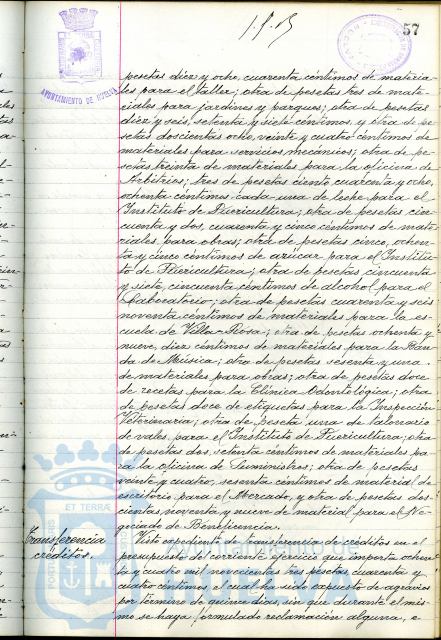 57
AYUNTAMIENTO DE HUELVA
pesetas diez y ocho, cuarenta céntimos de materia-
les para el taller; otra de pesetas tres de mate-
riales para jardines y parques; otra de pesetas
diez y seis, setenta y siete céntimos, y otra de pe-
setas doscientas ocho, veinte y cuatro céntimos de
materiales para servicios mecánicos; otra de pe-
setas treinta de materiales para la oficina de
Arbitrios; tres de pesetas ciento cuarenta y ocho,
ochenta céntimos cada una de leche para el
Instituto de Puericultura; otra de pesetas cin-
cuenta y dos, cuarenta y cinco céntimos de mate-
riales para obras; otra de pesetas cinco, ochen-
ta y cinco céntimos de azúcar para el Institu-
to de Puericultura; otra de pesetas cincuenta
y siete, cincuenta céntimos de alcohol para el
Laboratorio; otra de pesetas cuarenta y seis
noventa céntimos de materiales para la es-
cuela de Villa-Rosa; otra de pesetas ochenta y
nueve, diez céntimos de materiales para la Ban-
da de Música; otra de pesetas sesenta y una
de materiales para obras; otra de pesetas doce
de recetas para la Clínica Odontológica; otra
de pesetas doce de etiquetas para la Inspección
Veterinaria; otra de peseta una de talonario
de vales para el Instituto de Puericultura; otra
de pesetas dos, setenta céntimos de materiales pa-
ra la oficina de Suministros; otra de pesetas
veinte y cuatro, sesenta céntimos de material de
escritorio para el Mercado, y otra de pesetas dos-
cientas noventa y nueve de material para el Ne-
gociado de Beneficencia.
Transferencia
créditos.
Visto expediente de transferencia de créditos en el
presupuesto del corriente ejercicio que importa ochen-
ta y cuatro mil novecientas tres pesetas cuarenta y
cuatro céntimos, el cual ha sido expuesto de agravios
por término de quince días, sin que durante el mis-
mo se haya formulado reclamación alguna, e
ET TERRÆ
HUELVA